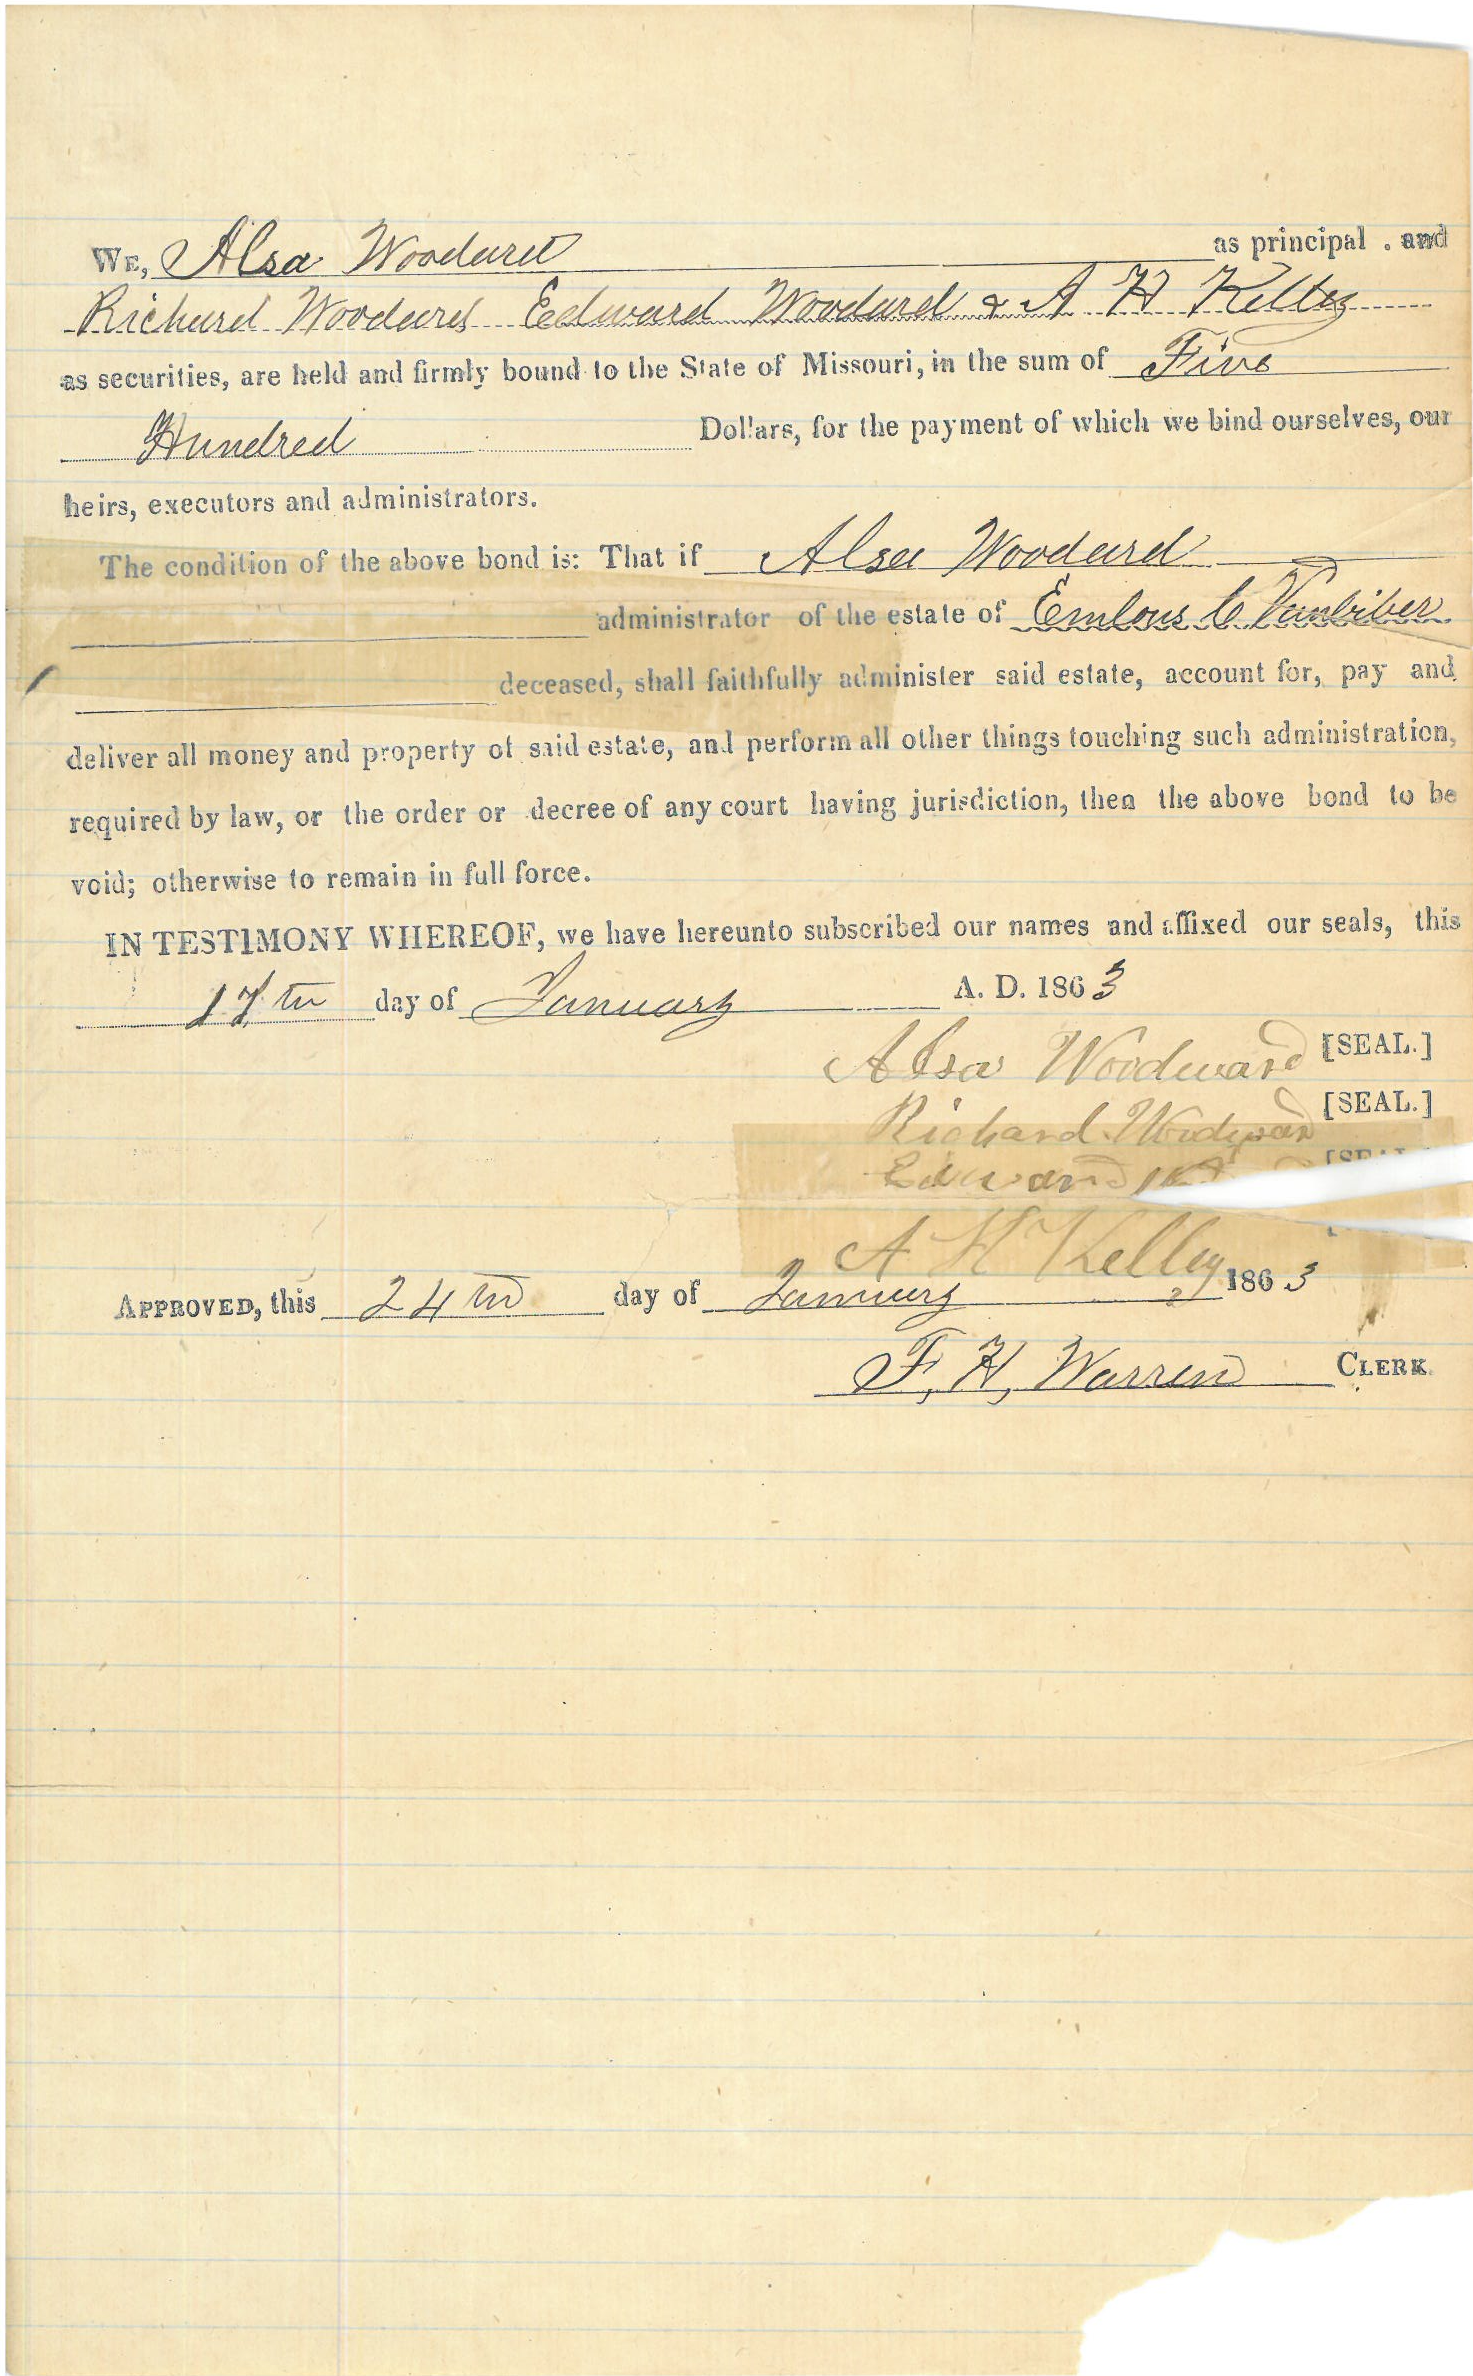 WE, Alsa Woodard as principal . and
Richard Woodard Edward Woodard & A H Kelley
as securities, are held and firmly bound to the State of Missouri, in the sum of Five
Hundred Dollars, for the payment of which we bind ourselves, our
heirs, executors and administrators.
The condition of the above bond is: That if Alsa Woodard
administrator of the estate of Emlous C Vanbiber
deceased, shall faithfully administer said estate, account for, pay and
deliver all money and property of said estate, and perform all other things touching such administration,
required by law, or the order or decree of any court having jurisdiction, then the above bond to be
void; otherwise to remain in full force.
IN TESTIMONY WHEREOF, we have hereunto subscribed our names and affixed our seals, this
17th day of January A. D. 1863
Alsa Woodward [SEAL.]
Richard Woodward [SEAL.]
Edward
A H Kelley
APPROVED, this 24th day of January 1863
F. H. Warren CLERK.